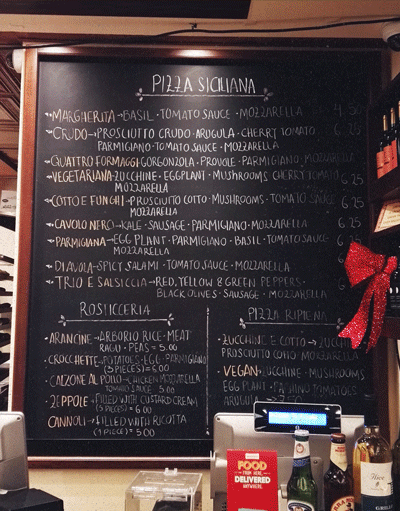 PIZZA SICILIANA
MARGHERITA → BASIL · TOMATO SAUCE · MOZZARELLA 4.50
CRUDO → PROSCIUTTO CRUDO · ARUGULA · CHERRY TOMATO 6.25
PARMIGIANO · TOMATO SAUCE · MOZZARELLA
QUATTRO FORMAGGI GORGONZOLA · PROVOLE · PARMIGIANO · MOZZARELLA
VEGETARIANA → ZUCCHINE · EGGPLANT · MUSHROOMS CHERRY TOMATO 6.25
MOZZARELLA
COTTO E FUNGHI → PROSCIUTTO COTTO · MUSHROOMS · TOMATO SAUCE 6.25
MOZZARELLA
CAVOLO NERO → KALE · SAUSAGE · PARMIGIANO · MOZZARELLA 6.25
PARMIGIANA → EGG PLANT · PARMIGIANO · BASIL · TOMATO SAUCE
MOZZARELLA
DIAVOLA → SPICY SALAMI · TOMATO SAUCE · MOZZARELLA
TRIO E SALSICCIA → RED, YELLOW & GREEN PEPPERS ·
BLACK OLIVES · SAUSAGE · MOZZARELLA
ROSTICCERIA
ARANCINE → ARBORIO RICE · MEAT
RAGU · PEAS = 5.00
CROCCHETTE → POTATOES · EGG · PARMIGIANO
(3 PIECES) = 6.00
CALZONE AL POLLO → CHICKEN MOZZARELLA
TOMATO SAUCE = 5.00
ZEPPOLE → FILLED WITH CUSTARD CREAM
(3 PIECES) = 6.00
CANNOLI → FILLED WITH RICOTTA
(1 PIECE) = 5.00
PIZZA RIPIENA
ZUCCHINE E COTTO → ZUCCHINE
PROSCIUTTO COTTO MOZZARELLA
VEGAN → ZUCCHINE · MUSHROOMS
EGG PLANT · PACHINO TOMATOES
ARUGULA
FOOD
FROM HERE,
DELIVERED
ANYWHERE.